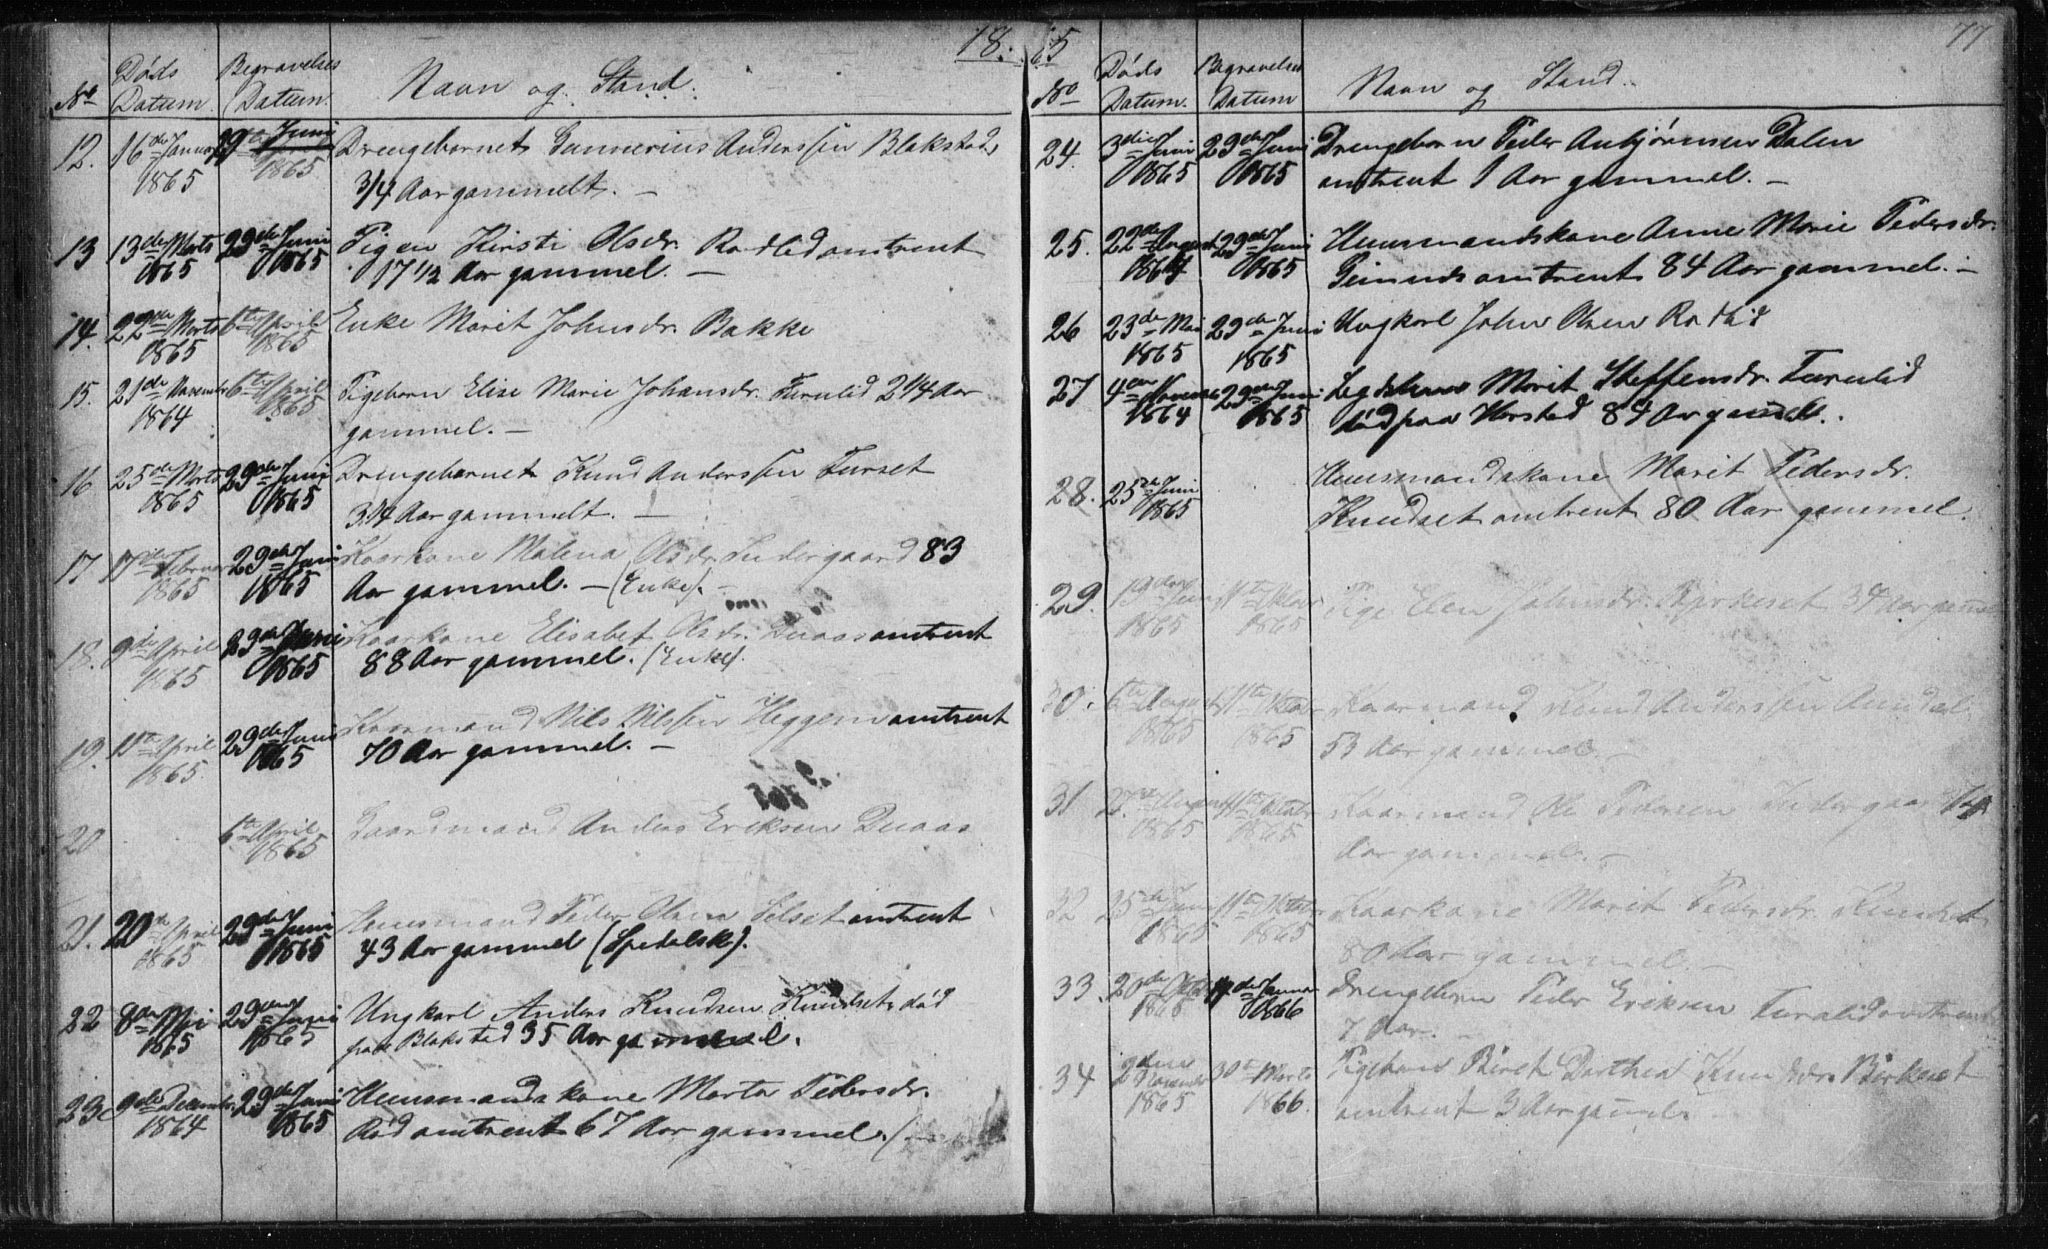 18.
No Døds Datum. Begravelses Datum. Navn og Stand.
12. 16de Januar 1865 Juni 1865 Drengebarnet Gunnerius Anderssen Blakstad,
3/4 Aar gammelt. —
13 13de Marts 1865 29de Juni 1865 Pigen Kirsti Olsdr. Rødlid omtrent
17 1/2 Aar gammel. —
14. 22de Marts 1865 6te April 1865 Enke Marit Johnsdr. Bakke
15. 21de November 1864 6te April 1865 Pigebarn Elise Marie Johansdr. 2 1/4 Aar
gammel. —
16 25de Marts 1865 29de Juni 1865 Drengebarnet Knud Anderssen Furset
3/4 Aar gammelt. —
17. 17de Februar 1865 29de Juni 1865 Kaarkone Malena Olsdr. Indergaard 83
Aar gammel. — (Enke). —
18. 9de April 1865 29de Juni 1865 Kaarkone Elisabet Olsdr. Duaas omtrent
88 Aar gammel. (Enke).
19. 11te April 1865 29de Juni 1865 Kaarmand Nils Nilssen Heggem omtrent
70 Aar gammel. —
20 6te April 1865 Gaardmand Anders Eriksen Duaas
21. 20de April 1865 29de Juni 1865 Huusmand Peder Olsen Selset omtrent
43 Aar gammel (Spedalsk).
22 8de Mai 1865 29de Juni 1865 Ungkarl Anders Knudsen Knudset, død
paa Blakstad 35 Aar gammel.
23. 9de December 1864 29de Juni 1865 Huusmandskone Marta Pedersdr.
Rød omtrent 67 Aar gammel. —
65 77
No Døds Datum. Begravelses Datum Navn og Stand.
24. 3die Juni 1865 29de Juni 1865 Drengebarn Peder Anbjørnsen Dalen
omtrent 1 Aar gammel. —
25. 22de August 1864 29de Juni 1865 Huusmandskone Anne Marie Pedersdr.
omtrent 84 Aar gammel. —
26 23de Mai 1865 29de Juni 1865 Ungkarl John Olsen Rødlid
27 4de November 1864 29de Juni 1865 Marit Steffensdr.
død paa Harstad 84 Aar gammel.
28. 25de Juni 1865 Huusmandskone Marit Pedersdr.
Knudset omtrent 80 Aar gammel.
29. 19de Juni 1865 11te Oktober 1865 Pige Elen Johnsdr. Birkeset 34 Aar gammel
30. 6te August 1865 11te Oktober 1865 Kaarmand Knud Anderssen Aundal
53 Aar gammel. —
31 August 1865 11te Oktober 1865 Kaarmand Ole Pedersen Indergaard
Aar gammel. —
32 25de Juni 1865 11te Oktober 1865 Kaarkone Marit Pedersdr. Knudset
80 Aar gammel. —
33. 20de Oktbr 1865 Januar 1866 Drengebarn Peder Eriksen omtrent
7 Aar. —
34 2den November 1865 30te Marts 1866. Pigebarn Beret Dorthea Knudsdr. Birkeset
omtrent 3 Aar gammel.